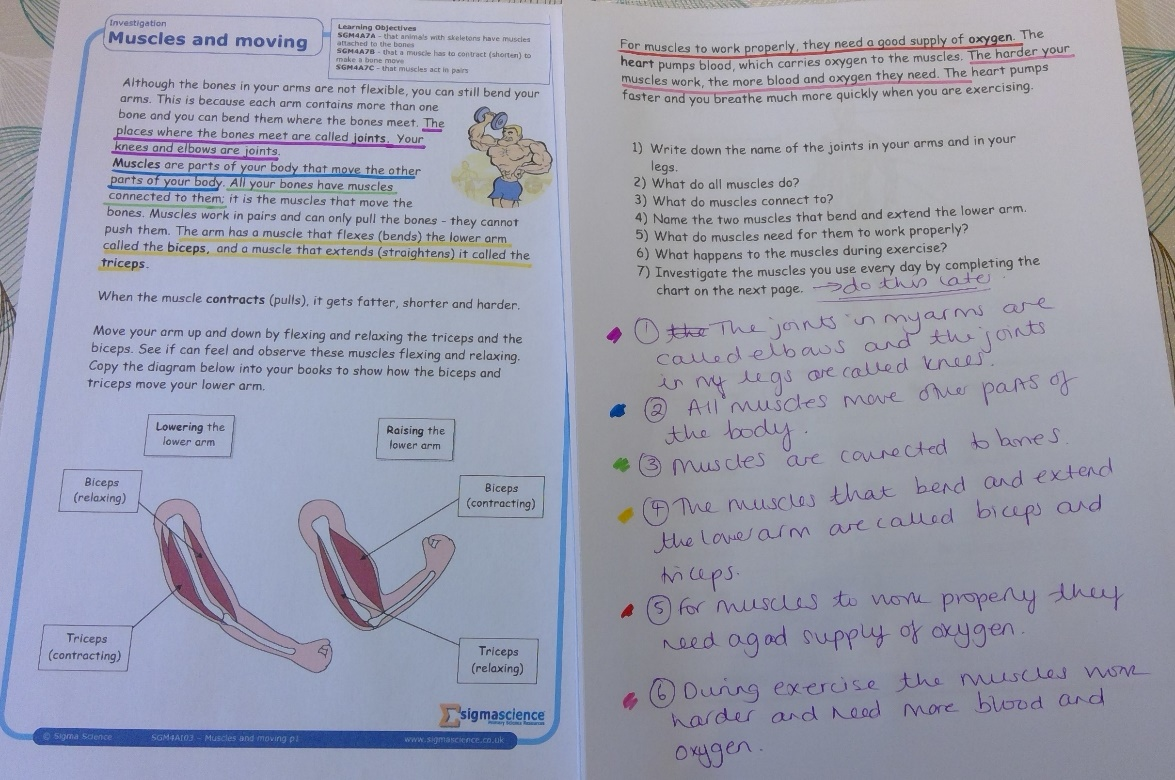 Investigation
Muscles and moving
Learning Objectives
SGM4A7A – that animals with skeletons have muscles
attached to the bones
SGM4A7B – that a muscle has to contract (shorten) to
make a bone move
SGM4A7C – that muscles act in pairs
Although the bones in your arms are not flexible, you can still bend your
arms. This is because each arm contains more than one
bone and you can bend them where the bones meet. The
places where the bones meet are called joints. Your
knees and elbows are joints.
Muscles are parts of your body that move the other
parts of your body. All your bones have muscles
connected to them; it is the muscles that move the
bones. Muscles work in pairs and can only pull the bones - they cannot
push them. The arm has a muscle that flexes (bends) the lower arm
called the biceps, and a muscle that extends (straightens) it called the
triceps.
When the muscle contracts (pulls), it gets fatter, shorter and harder.
Move your arm up and down by flexing and relaxing the triceps and the
biceps. See if can feel and observe these muscles flexing and relaxing.
Copy the diagram below into your books to show how the biceps and
triceps move your lower arm.
Lowering the
lower arm
Raising the
lower arm
Biceps
(relaxing)
Biceps
(contracting)
Triceps
(contracting)
Triceps
(relaxing)
sigmascience
Primary Science Resources
© Sigma Science SGM4A103 – Muscles and moving p1 www.sigmascience.co.uk
For muscles to work properly, they need a good supply of oxygen. The
heart pumps blood, which carries oxygen to the muscles. The harder your
muscles work, the more blood and oxygen they need. The heart pumps
faster and you breathe much more quickly when you are exercising.
1) Write down the name of the joints in your arms and in your
legs.
2) What do all muscles do?
3) What do muscles connect to?
4) Name the two muscles that bend and extend the lower arm.
5) What do muscles need for them to work properly?
6) What happens to the muscles during exercise?
7) Investigate the muscles you use every day by completing the
chart on the next page. → do this later
① the The joints in my arms are
called elbows and the joints
in my legs are called knees.
② All muscles move other parts of
the body.
③ muscles are connected to bones.
④ The muscles that bend and extend
the lower arm are called biceps and
triceps.
⑤ For muscles to work properly they
need a good supply of oxygen.
⑥ During exercise the muscles work
harder and need more blood and
oxygen.